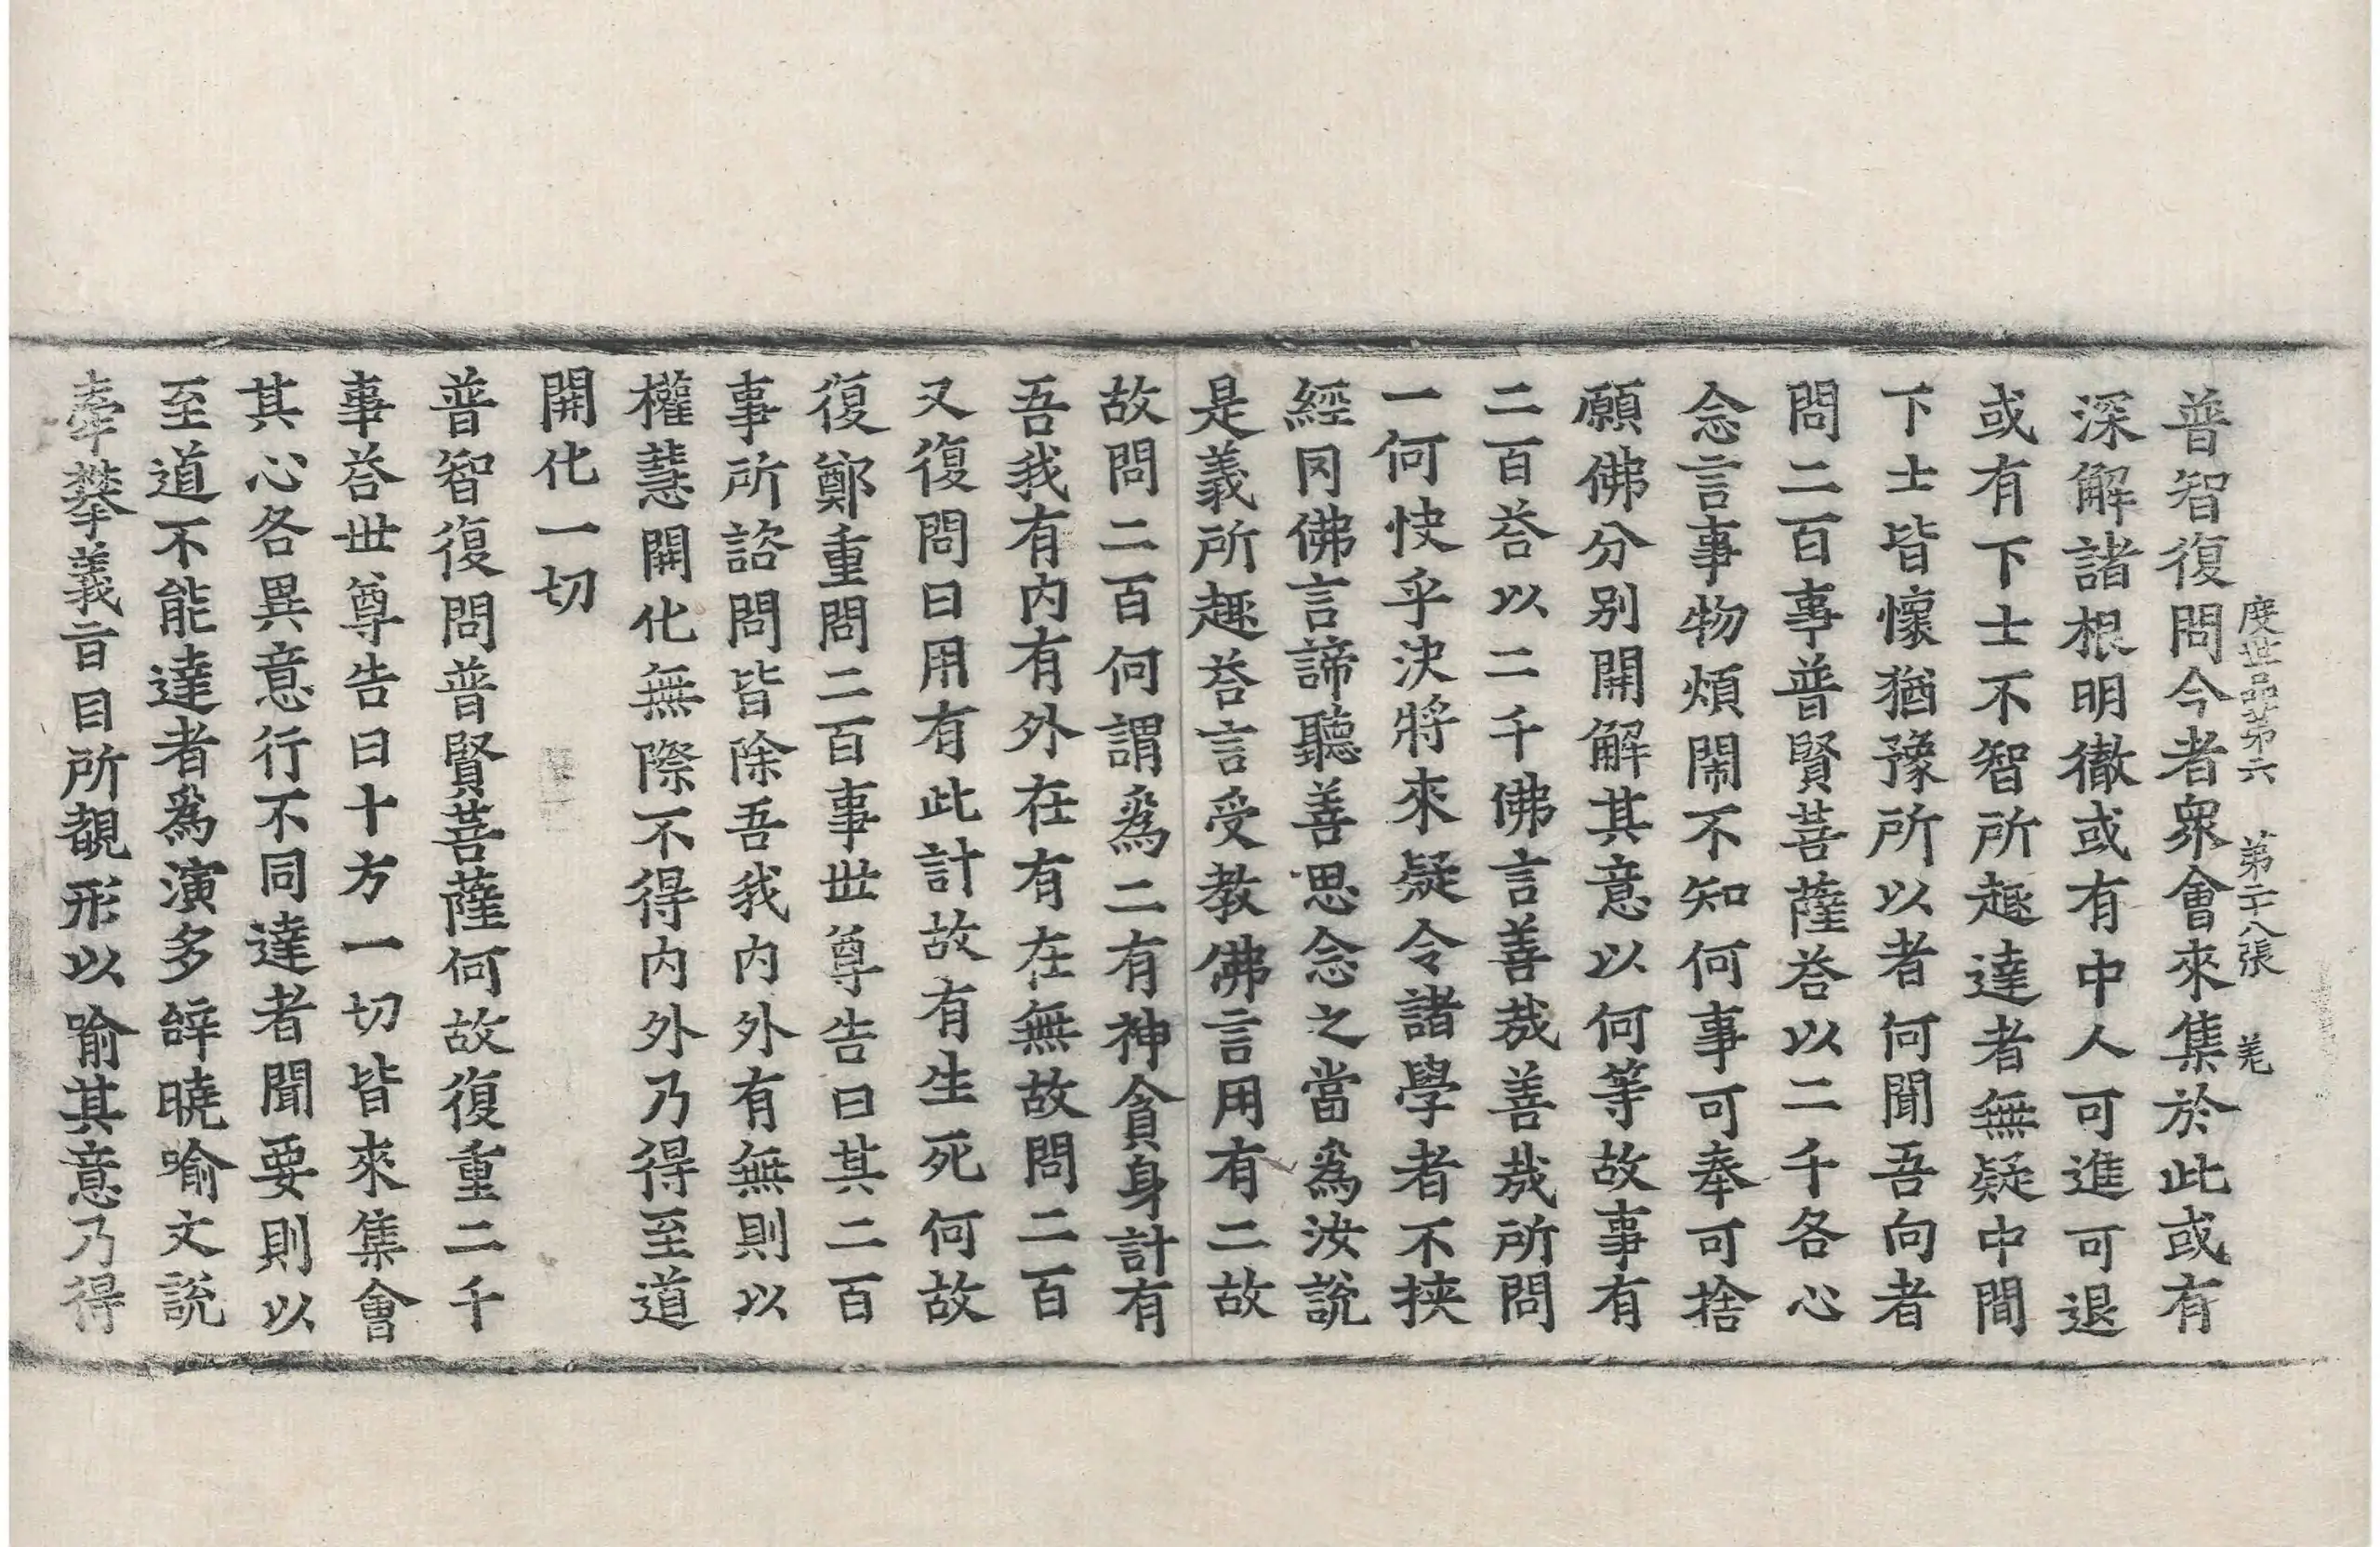 度世品第六 第二十八張 羌
普智復問今者衆會來集於此或有
深解諸根明徹或有中人可進可退
或有下士不智所趣達者無疑中間
下士皆懷猶豫所以者何聞吾向者
問二百事普賢菩薩荅以二千各心
念言事物煩鬧不知何事可奉可捨
願佛分別開解其意以何等故事有
二百荅以二千佛言善哉善哉所問
一何快乎決將來疑令諸學者不挾
經冈佛言諦聽善思念之當爲汝說
是義所趣荅言受教佛言用有二故
故問二百何謂爲二有神貪身計有
吾我有内有外在有在無故問二百
又復問曰用有此計故有生死何故
復鄭重問二百事世尊告曰其二百
事所諮問皆除吾我内外有無則以
權慧開化無際不得内外乃得至道
開化一切
普智復問普賢菩薩何故復重二千
事荅世尊告曰十方一切皆來集會
其心各異意行不同達者聞要則以
至道不能達者爲演多辝曉喻文說
牽攀義盲目所覩形以喻其意乃得